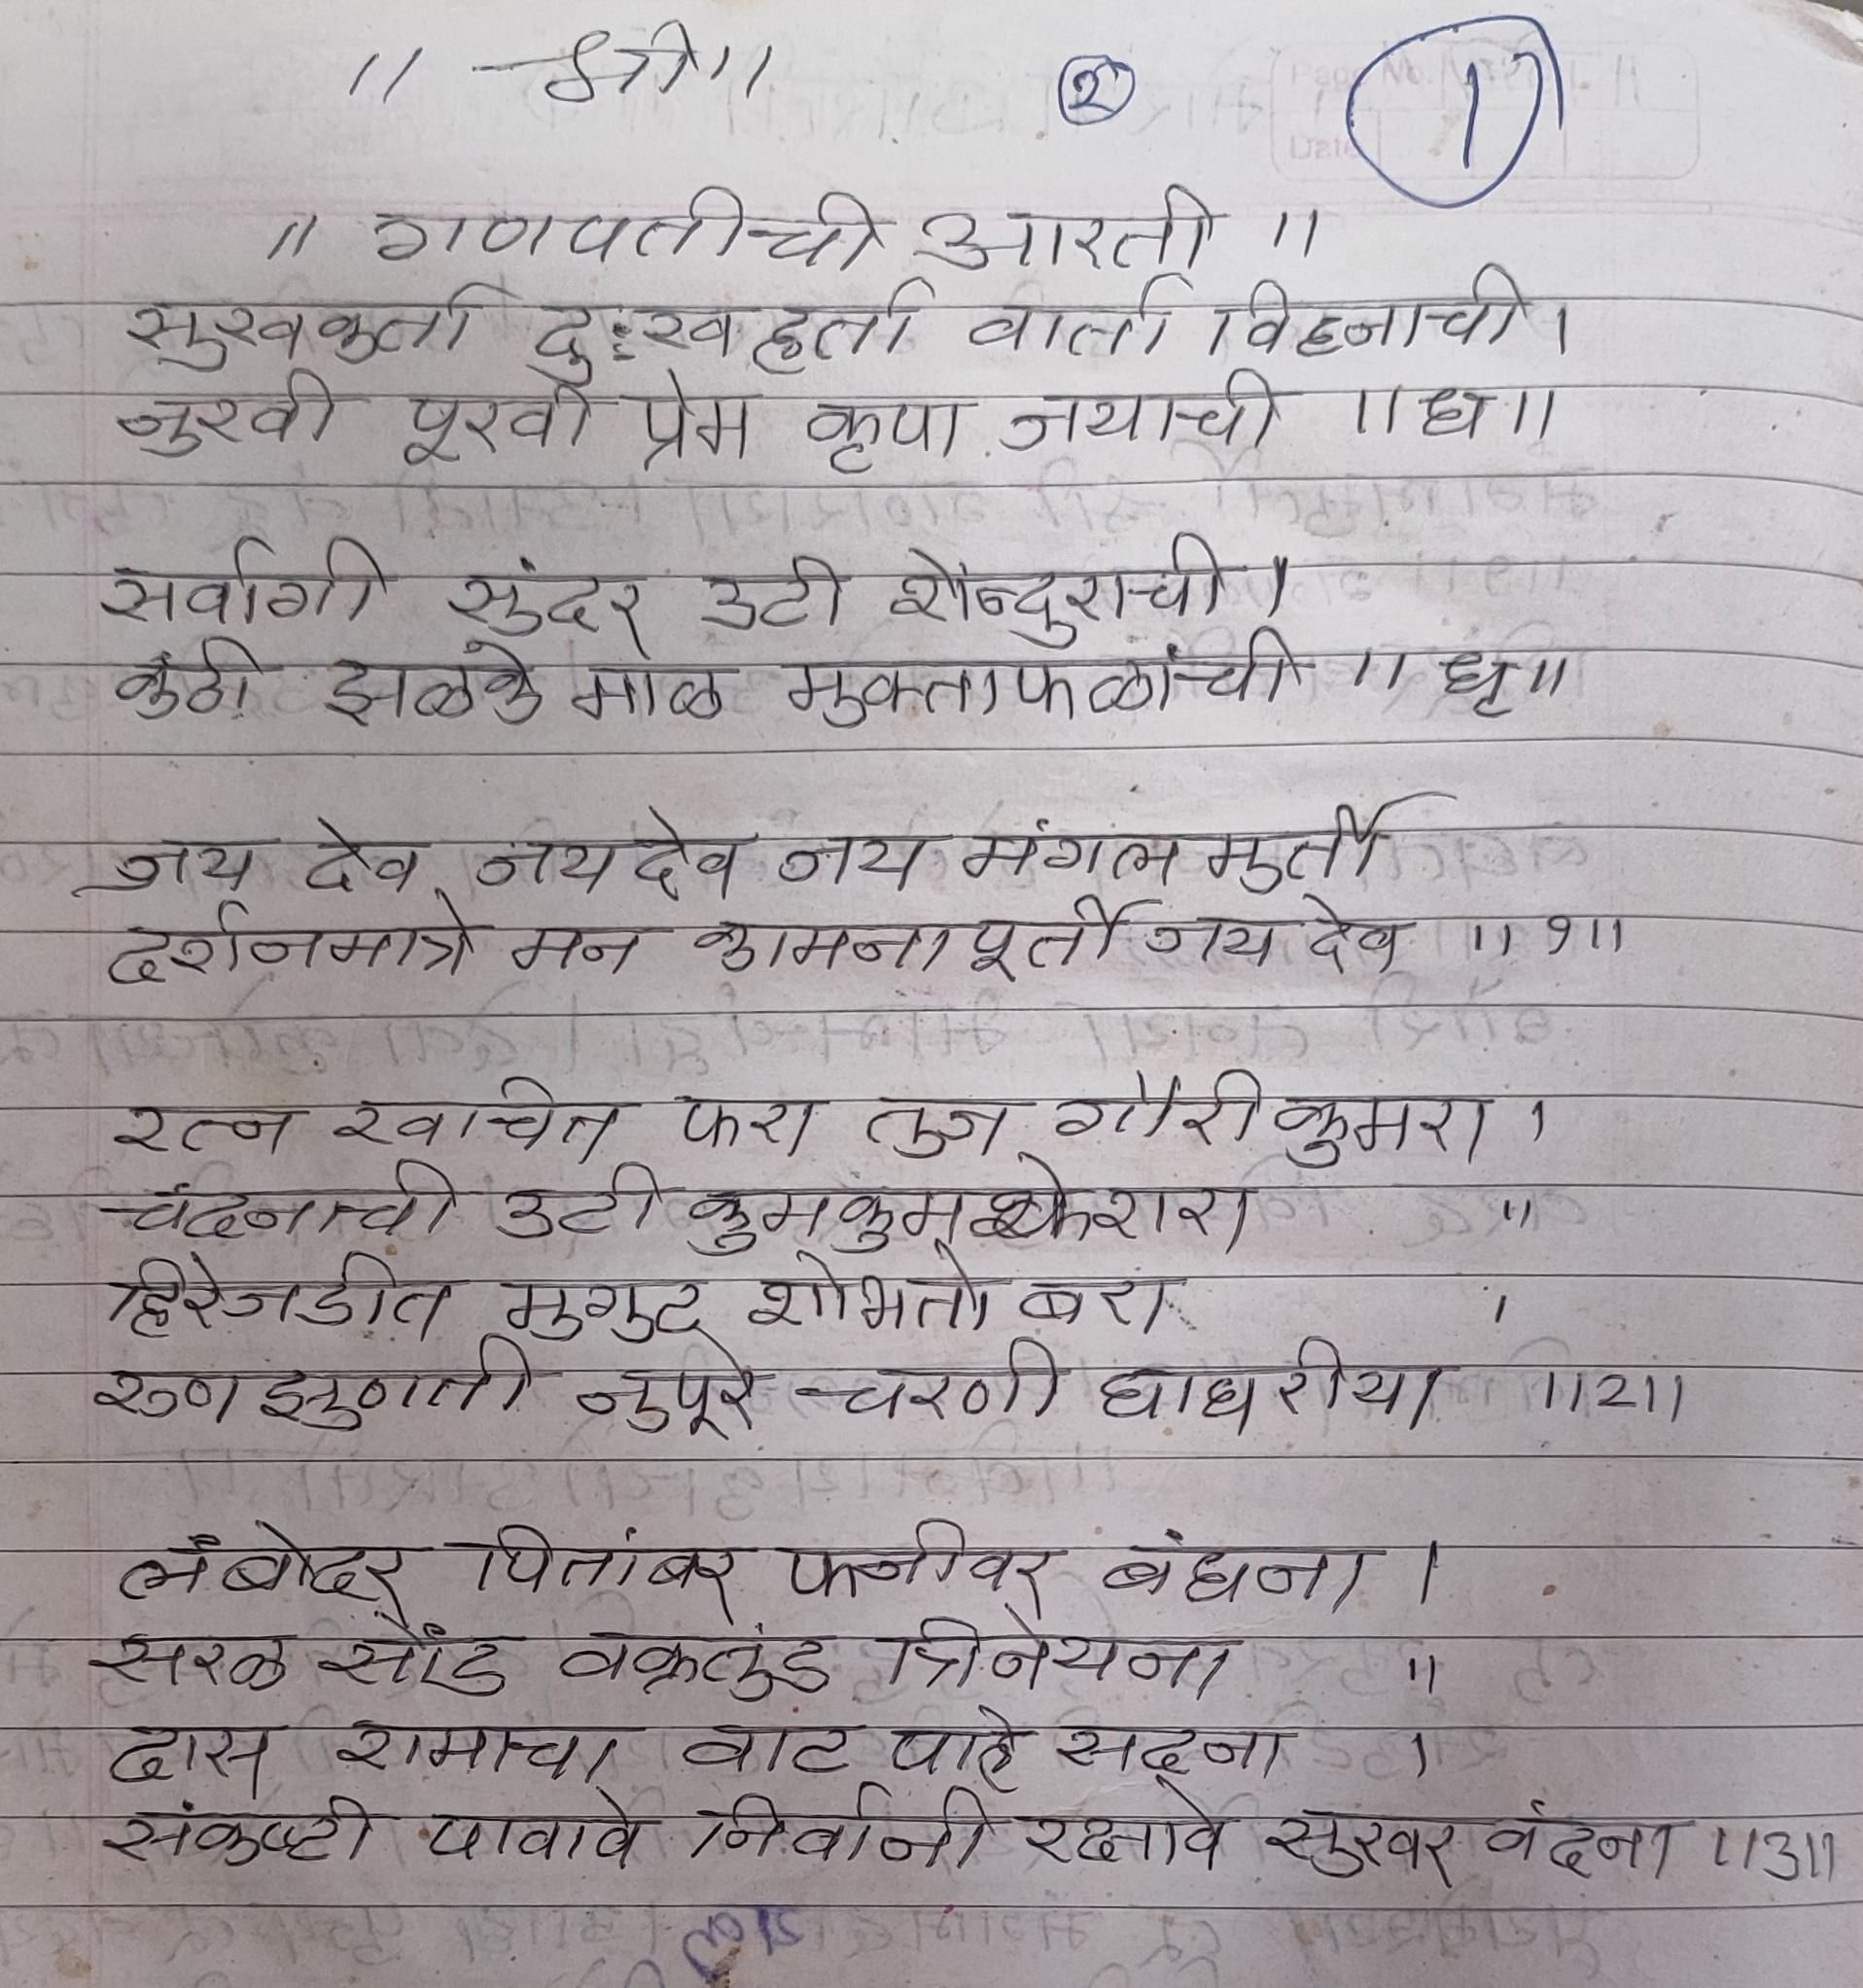 ॥ श्री ॥ २ 1
॥ गणपतीची आरती ॥
सुखकर्ता दुःखहर्ता वार्ता विघ्नाची ।
नुरवी पूरवी प्रेम कृपा जयाची ॥ धृ ॥
सर्वांगी सुंदर उटी शेन्दुराची ।
कंठी झळके माळ मुक्ताफळांची ॥ धृ ॥
जय देव जय देव जय मंगल मुर्ती
दर्शनमात्रे मन कामना पूर्ती जय देव ॥ १ ॥
रत्न खचित फरा तुज गौरीकुमरा ।
चंदनाची उटी कुमकुम केशरा ॥
हिरेजडीत मुगुट शोभतो बरा ।
रुणझुणती नुपूरे चरणी घाघरीया ॥ 2 ॥
लंबोदर पितांबर फनीवर बंधना ।
सरळ सोंड वक्रतुंड त्रिनेयना ॥
दास रामाचा वाट पाहे सदना ।
संकष्टी पावावे निर्वानी रक्षावे सुरवर वंदना ॥ 3 ॥